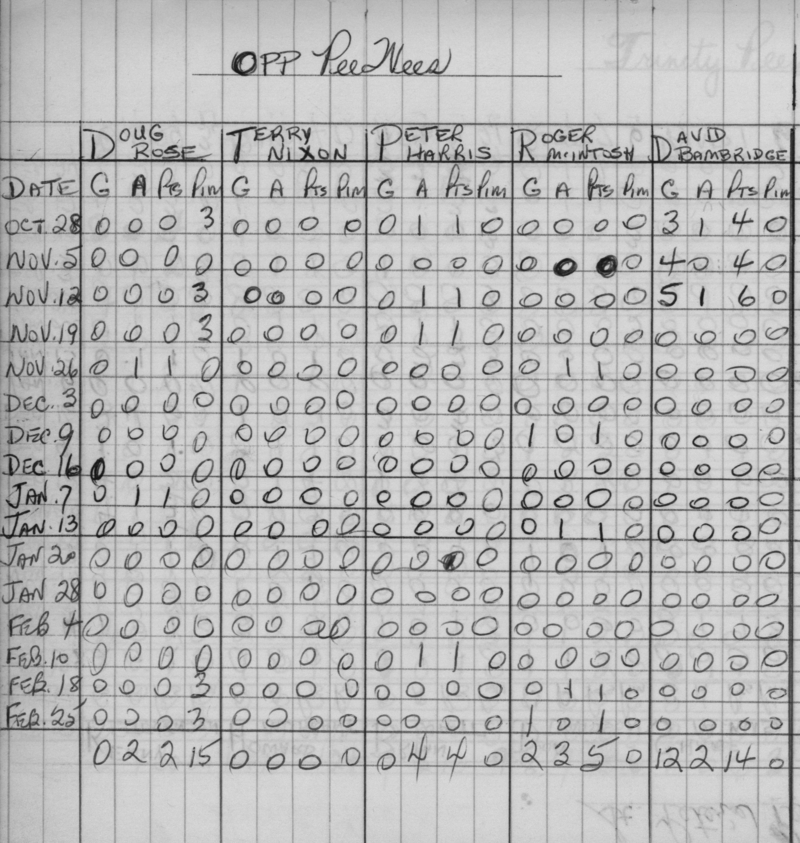 OPP PeeWees
DOUG ROSE TERRY NIXON PETER HARRIS ROGER McINTOSH DAVID BAMBRIDGE
DATE G A Pts Pim G A Pts Pim G A Pts Pim G A Pts Pim G A Pts Pim
OCT.28 0 0 0 3 0 0 0 0 0 1 1 0 0 0 0 0 3 1 4 0
NOV.5 0 0 0 0 0 0 0 0 0 0 0 0 0 0 0 0 4 0 4 0
NOV.12 0 0 0 3 0 0 0 0 0 1 1 0 0 0 0 0 5 1 6 0
NOV.19 0 0 0 3 0 0 0 0 0 1 1 0 0 0 0 0 0 0 0 0
NOV.26 0 1 1 0 0 0 0 0 0 0 0 0 0 1 1 0 0 0 0 0
DEC.3 0 0 0 0 0 0 0 0 0 0 0 0 0 0 0 0 0 0 0 0
DEC.9 0 0 0 0 0 0 0 0 0 0 0 0 1 0 1 0 0 0 0 0
DEC 16 0 0 0 0 0 0 0 0 0 0 0 0 0 0 0 0 0 0 0 0
JAN.7 0 1 1 0 0 0 0 0 0 0 0 0 0 0 0 0 0 0 0 0
JAN.13 0 0 0 0 0 0 0 0 0 0 0 0 0 1 1 0 0 0 0 0
JAN 20 0 0 0 0 0 0 0 0 0 0 0 0 0 0 0 0 0 0 0 0
JAN 28 0 0 0 0 0 0 0 0 0 0 0 0 0 0 0 0 0 0 0 0
FEB 4 0 0 0 0 0 0 0 0 0 0 0 0 0 0 0 0 0 0 0 0
FEB.10 0 0 0 0 0 0 0 0 0 1 1 0 0 0 0 0 0 0 0 0
FEB.18 0 0 0 3 0 0 0 0 0 0 0 0 0 1 1 0 0 0 0 0
FEB.25 0 0 0 3 0 0 0 0 0 0 0 0 1 0 1 0 0 0 0 0
0 2 2 15 0 0 0 0 0 4 4 0 2 3 5 0 12 2 14 0